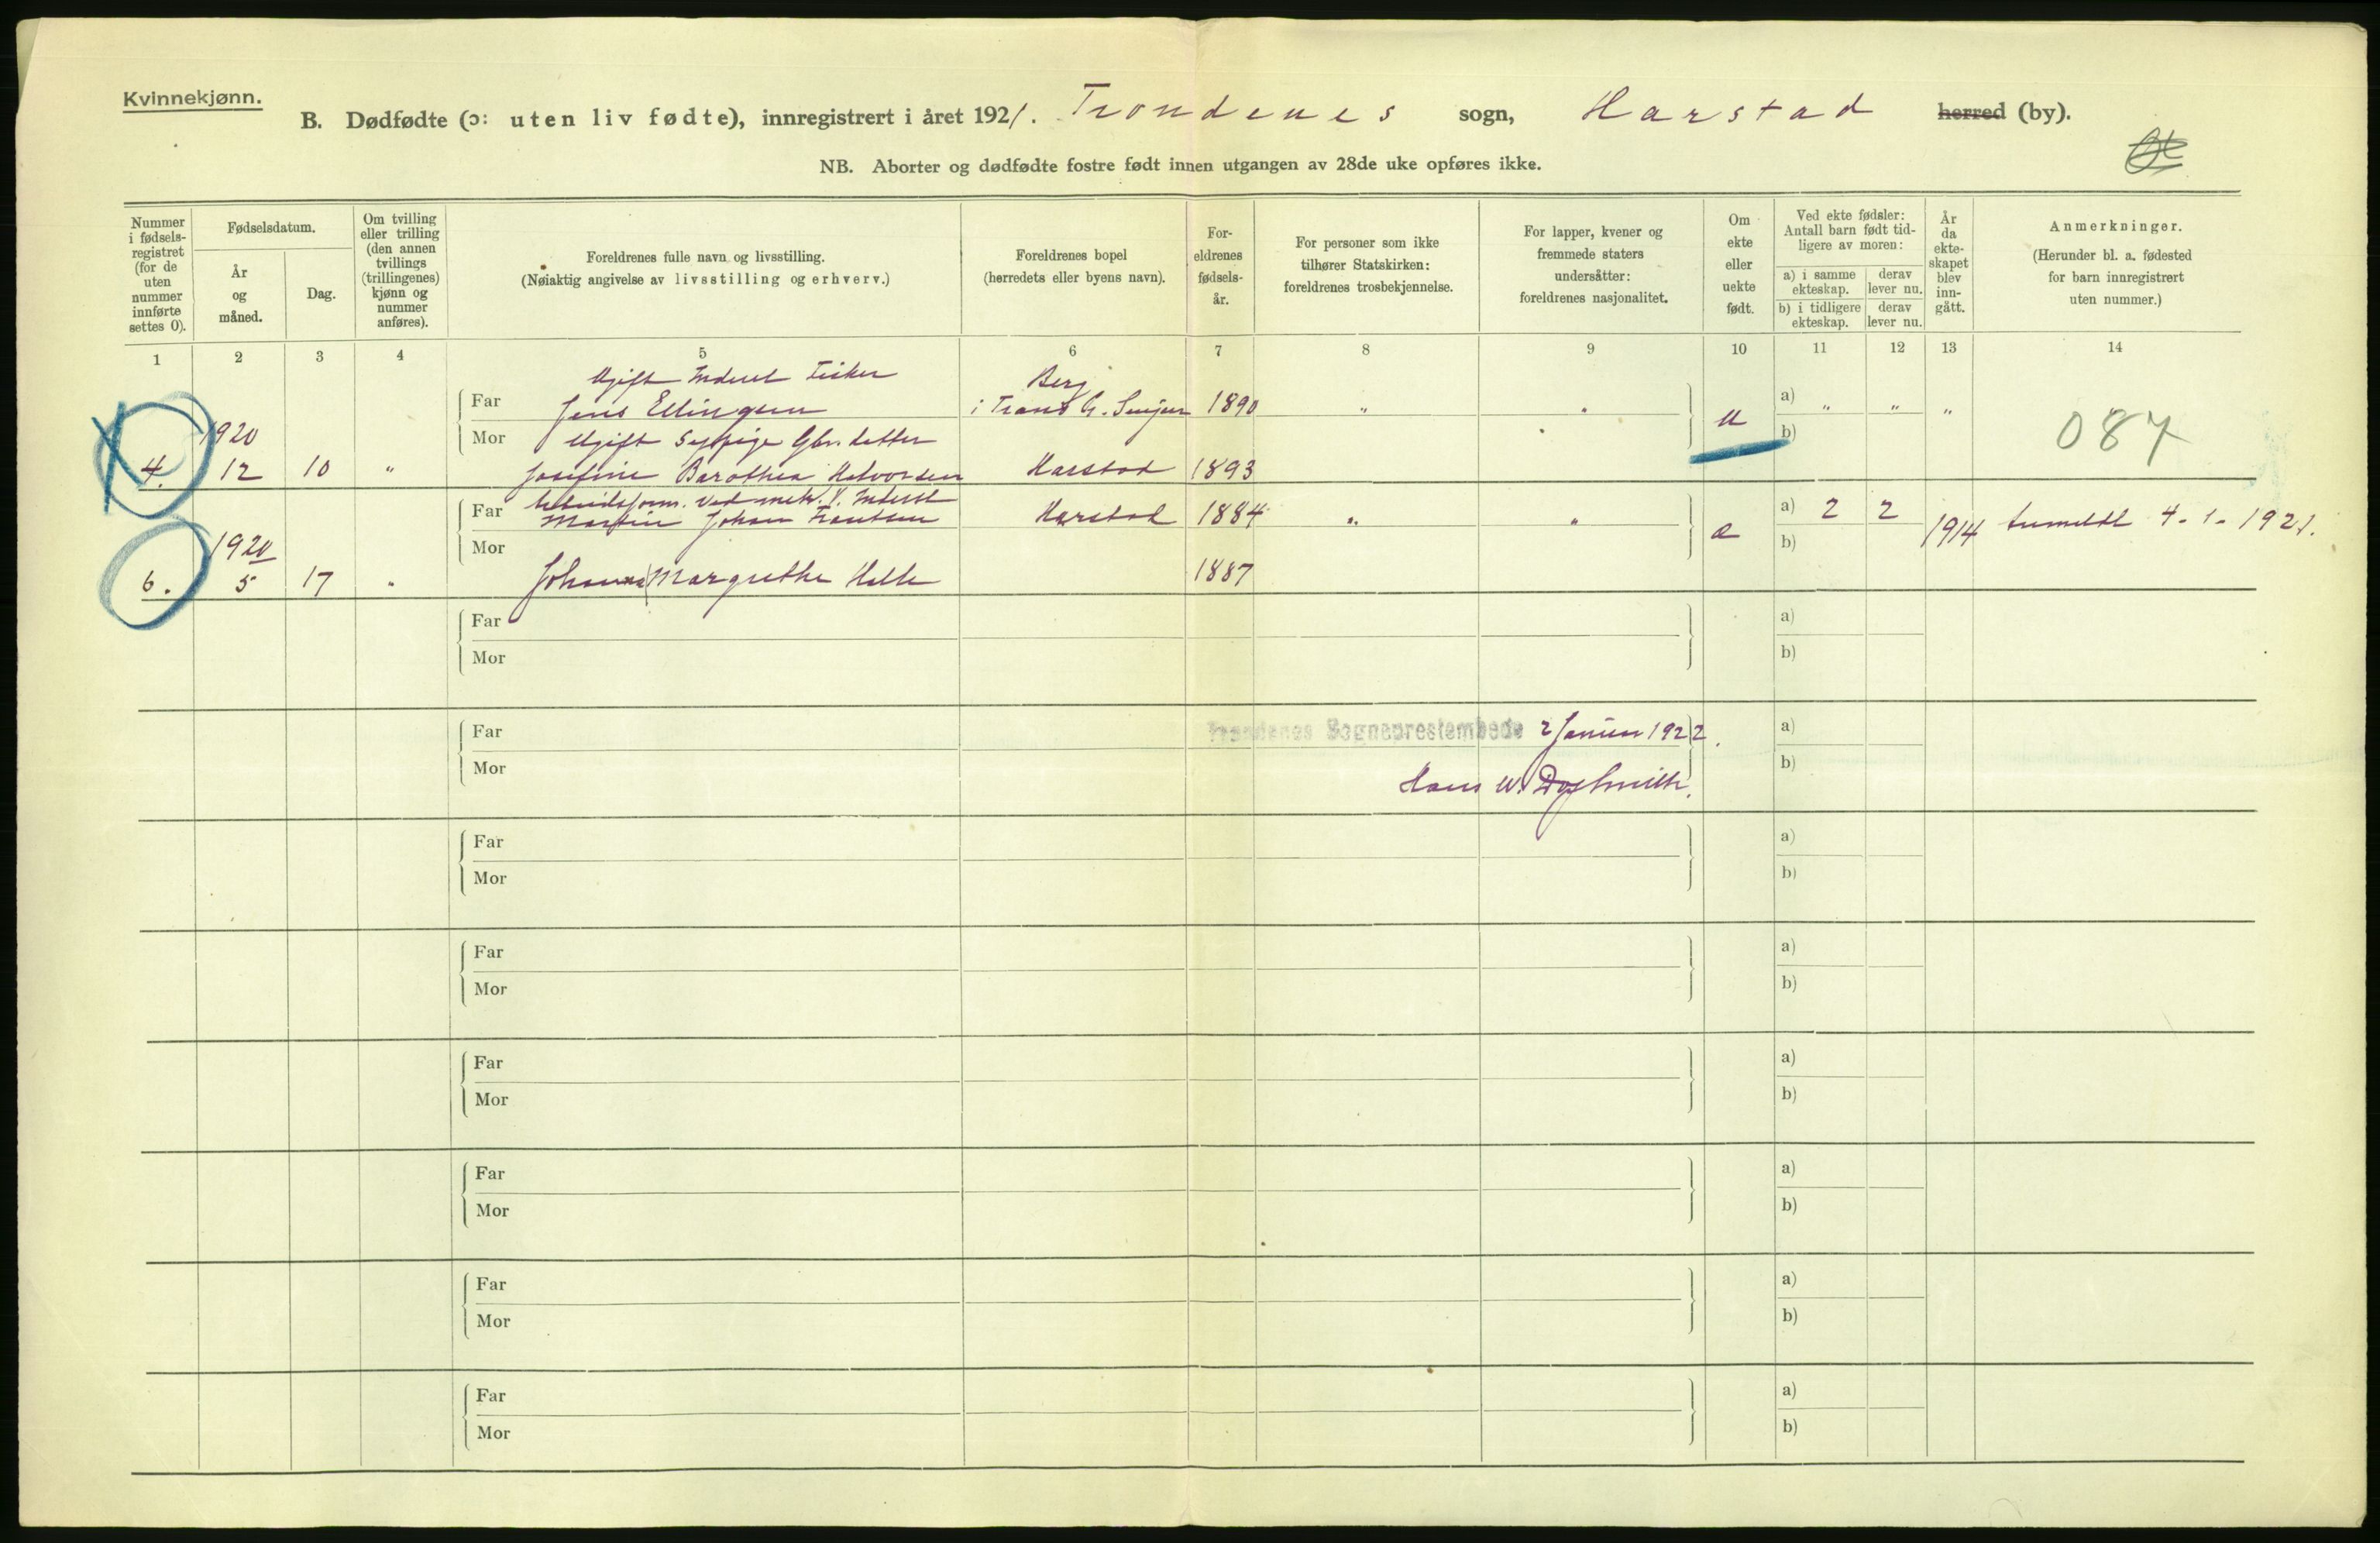 Kvinnekjønn.
B. Dødfødte (ɔ: uten liv fødte), innregistrert i året 1921. Trondenes sogn, Harstad herred (by).
NB. Aborter og dødfødte fostre født innen utgangen av 28de uke opføres ikke.
Nummer i fødsels-registret (for de uten nummer innførte settes 0).
Fødselsdatum.
År og måned.
Dag.
Om tvilling eller trilling (den annen tvillings (trillingenes) kjønn og nummer anføres).
Foreldrenes fulle navn og livsstilling.
(Nøiaktig angivelse av livsstilling og erhverv.)
Foreldrenes bopel
(herredets eller byens navn).
For-eldrenes fødsels-år.
For personer som ikke tilhører Statskirken: foreldrenes trosbekjennelse.
For lapper, kvener og fremmede staters undersåtter: foreldrenes nasjonalitet.
Om ekte eller uekte født.
Ved ekte fødsler: Antall barn født tid-ligere av moren:
a) i samme ekteskap.
derav lever nu.
b) i tidligere ekteskap.
derav lever nu.
År da ekte-skapet blev inn-gått.
Anmerkninger.
(Herunder bl. a. fødested for barn innregistrert uten nummer.)
1 2 3 4 5 6 7 8 9 10 11 12 13 14
Ugift Fisker Berg
Far Jens Ellingsen i 1890 " " u a) " " "
1920 Mor Ugift Sypige b) 087
4. 12 10 " Josefine Barothea Halvorsen Harstad 1893
ved mek. V.
Far Martin Johan Harstad 1884 " " a) 2 2 1914 4-1-1921.
1920 Mor b)
6. 5 17 " Johanne Margrethe 1887
Far a)
Mor b)
Far Trondenes Sogneprestembede 2 Januar 1922. a)
Mor Hans W. b)
Far a)
Mor b)
Far a)
Mor b)
Far a)
Mor b)
Far a)
Mor b)
Far a)
Mor b)
Far a)
Mor b)